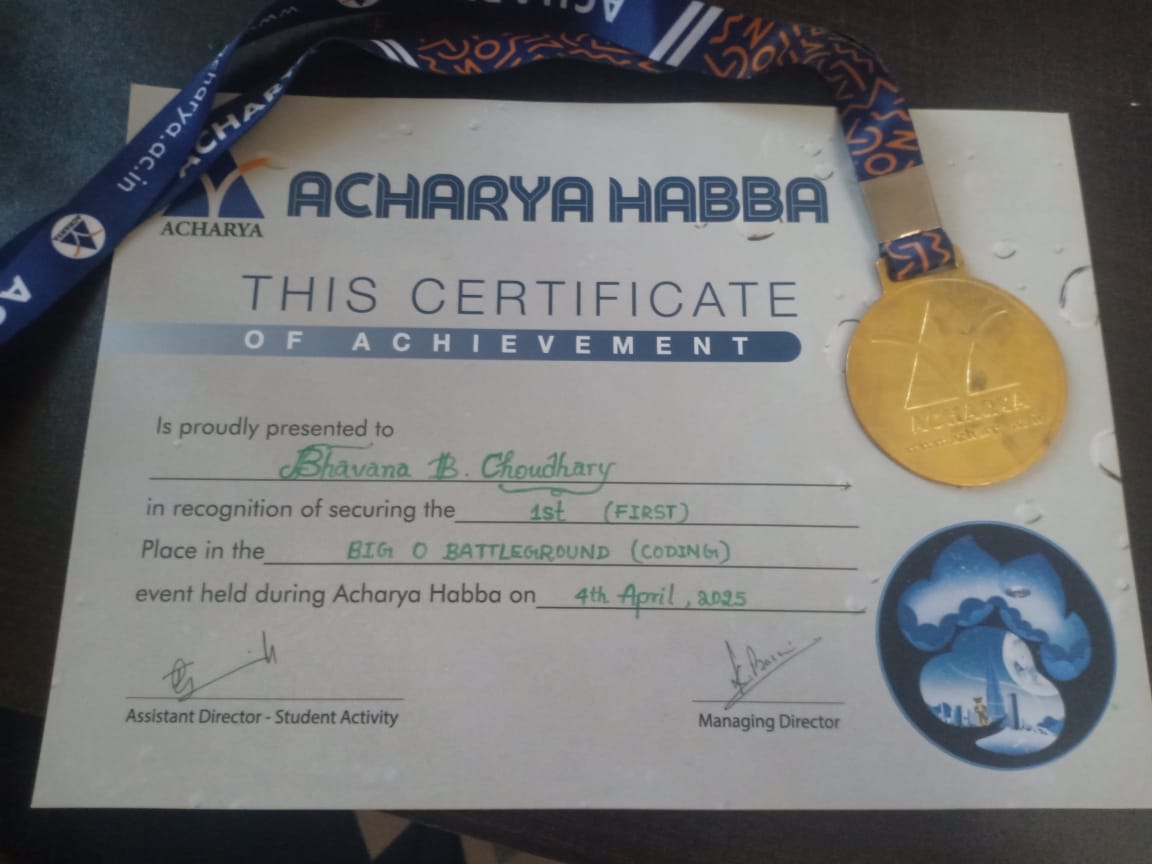 acharya.ac.in
ACHARYA
ACHARYA HABBA
THIS CERTIFICATE
OF ACHIEVEMENT
Is proudly presented to
Bhavana B. Choudhary
in recognition of securing the 1st (FIRST)
Place in the BIG O BATTLEGROUND (CODING)
event held during Acharya Habba on 4th April, 2025
Assistant Director - Student Activity
Managing Director
ACHARYA